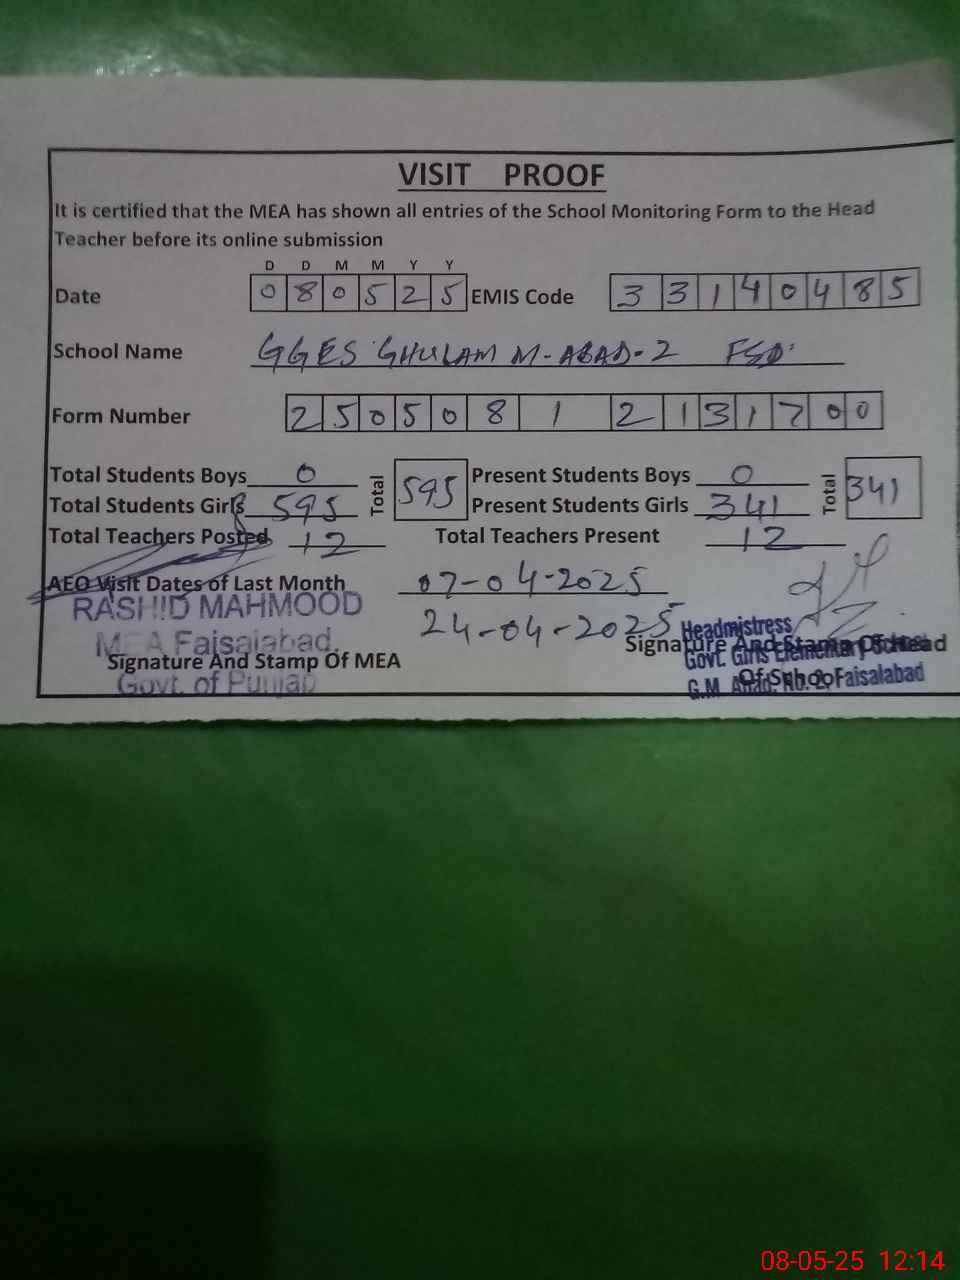 VISIT PROOF
It is certified that the MEA has shown all entries of the School Monitoring Form to the Head
Teacher before its online submission
D D M M Y Y
Date 0 8 0 5 2 5 EMIS Code 3 3 1 4 0 4 8 5
School Name GGES GHULAM M-ABAD-2 FSD
Form Number 2 5 0 5 0 8 1 2 1 3 1 7 0 0
Total Students Boys 0 Total 595 Present Students Boys 0 Total 341
Total Students Girls 595 Present Students Girls 341
Total Teachers Posted 12 Total Teachers Present 12
AEO Visit Dates of Last Month 07-04-2025
24-04-2025
RASHID MAHMOOD
MEA Faisalabad.
Signature And Stamp Of MEA
Govt. of Punjab
Headmistress
Signature And Stamp Of Head
Govt. Girls Elementary School
Of School
G.M. Abad. No. 2, Faisalabad
08-05-25 12:14